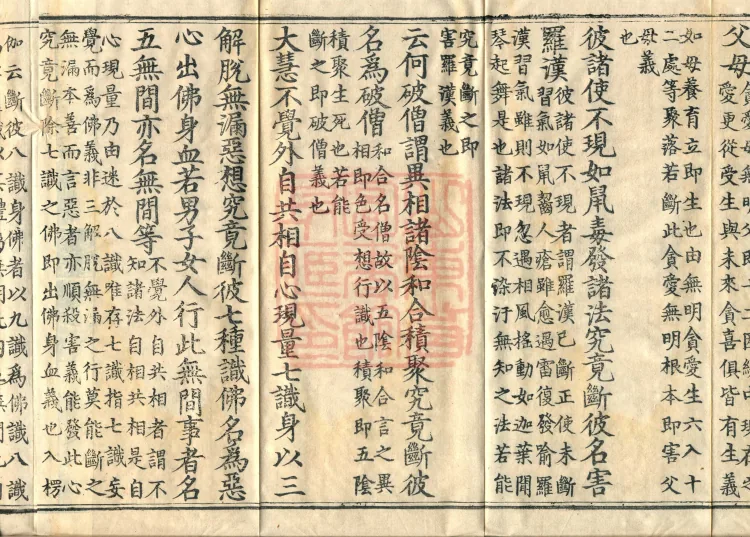 父母
愛更從受生與未來貪喜俱皆有生義
如母養育立即生也由無明貪愛生六入十
二處等聚落若斷此貪愛無明根本即害父
母義
也
彼諸使不現如鼠毒發諸法究竟斷彼名害
羅漢
彼諸使不現者謂羅漢已斷正使未斷
習氣如鼠齧人瘡雖愈過雷復發喻羅
漢習氣雖則不現忽遇相風搖動如迦葉聞
琴起舞是也諸法即不染汙無知之法若能
究竟斷之即
害羅漢義也
云何破僧謂異相諸陰和合積聚究竟斷彼
名為破僧
和合名僧故以五陰和合言之異
相即色受想行識也積聚即五陰
積聚生死也若能
斷之即破僧義也
大慧不覺外自共相自心現量七識身以三
解脫無漏惡想究竟斷彼七種識佛名為惡
心出佛身血若男子女人行此無間事者名
五無間亦名無間等
不覺外自共相者謂不
知諸法自相共相是自
心現量乃由迷於八識唯存七識指七識妄
覺而為佛義非三解脫無漏之行莫能斷之
無漏本善而言惡者亦順殺害義能發此心
究竟斷除七識之佛即出佛身血義也入楞
伽云斷彼八識身佛者以九識為佛識八識